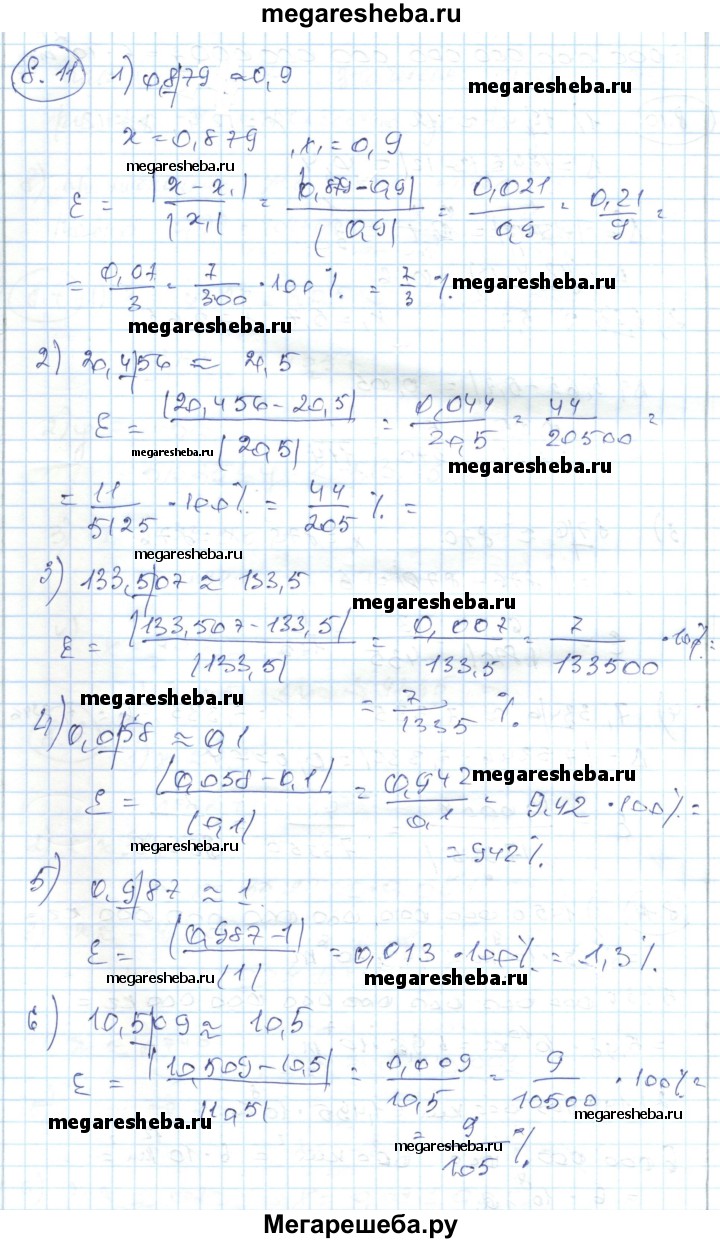 megaresheba.ru
8.11 1) 0,8|79 ≈ 0,9
megaresheba.ru
x = 0,879 , x₁ = 0,9
megaresheba.ru
ε = |x - x₁| / |x₁| = |0,879 - 0,9| / |0,9| = 0,021 / 0,9 = 0,21 / 9 =
= 0,07 / 3 = 7 / 300 · 100% = 7/3 %
megaresheba.ru
megaresheba.ru
2) 20,4|56 ≈ 20,5
ε = |20,456 - 20,5| / |20,5| = 0,044 / 20,5 = 44 / 20500 =
megaresheba.ru
megaresheba.ru
= 11 / 5125 · 100% = 44 / 205 % =
megaresheba.ru
3) 133,5|07 ≈ 133,5
megaresheba.ru
ε = |133,507 - 133,5| / |133,5| = 0,007 / 133,5 = 7 / 133500 · 100% =
megaresheba.ru
= 7 / 1335 %
4) 0,0|58 ≈ 0,1
ε = |0,058 - 0,1| / |0,1| = 0,942 / 0,1 = 9,42 · 100% =
megaresheba.ru
megaresheba.ru
= 942%
5) 0,9|87 ≈ 1
ε = |0,987 - 1| / |1| = 0,013 · 100% = 1,3%
megaresheba.ru
megaresheba.ru
6) 10,5|09 ≈ 10,5
ε = |10,509 - 10,5| / |10,5| = 0,009 / 10,5 = 9 / 10500 · 100% =
megaresheba.ru
megaresheba.ru
= 9 / 105 %
megaresheba.ru
Мегарешеба.ру